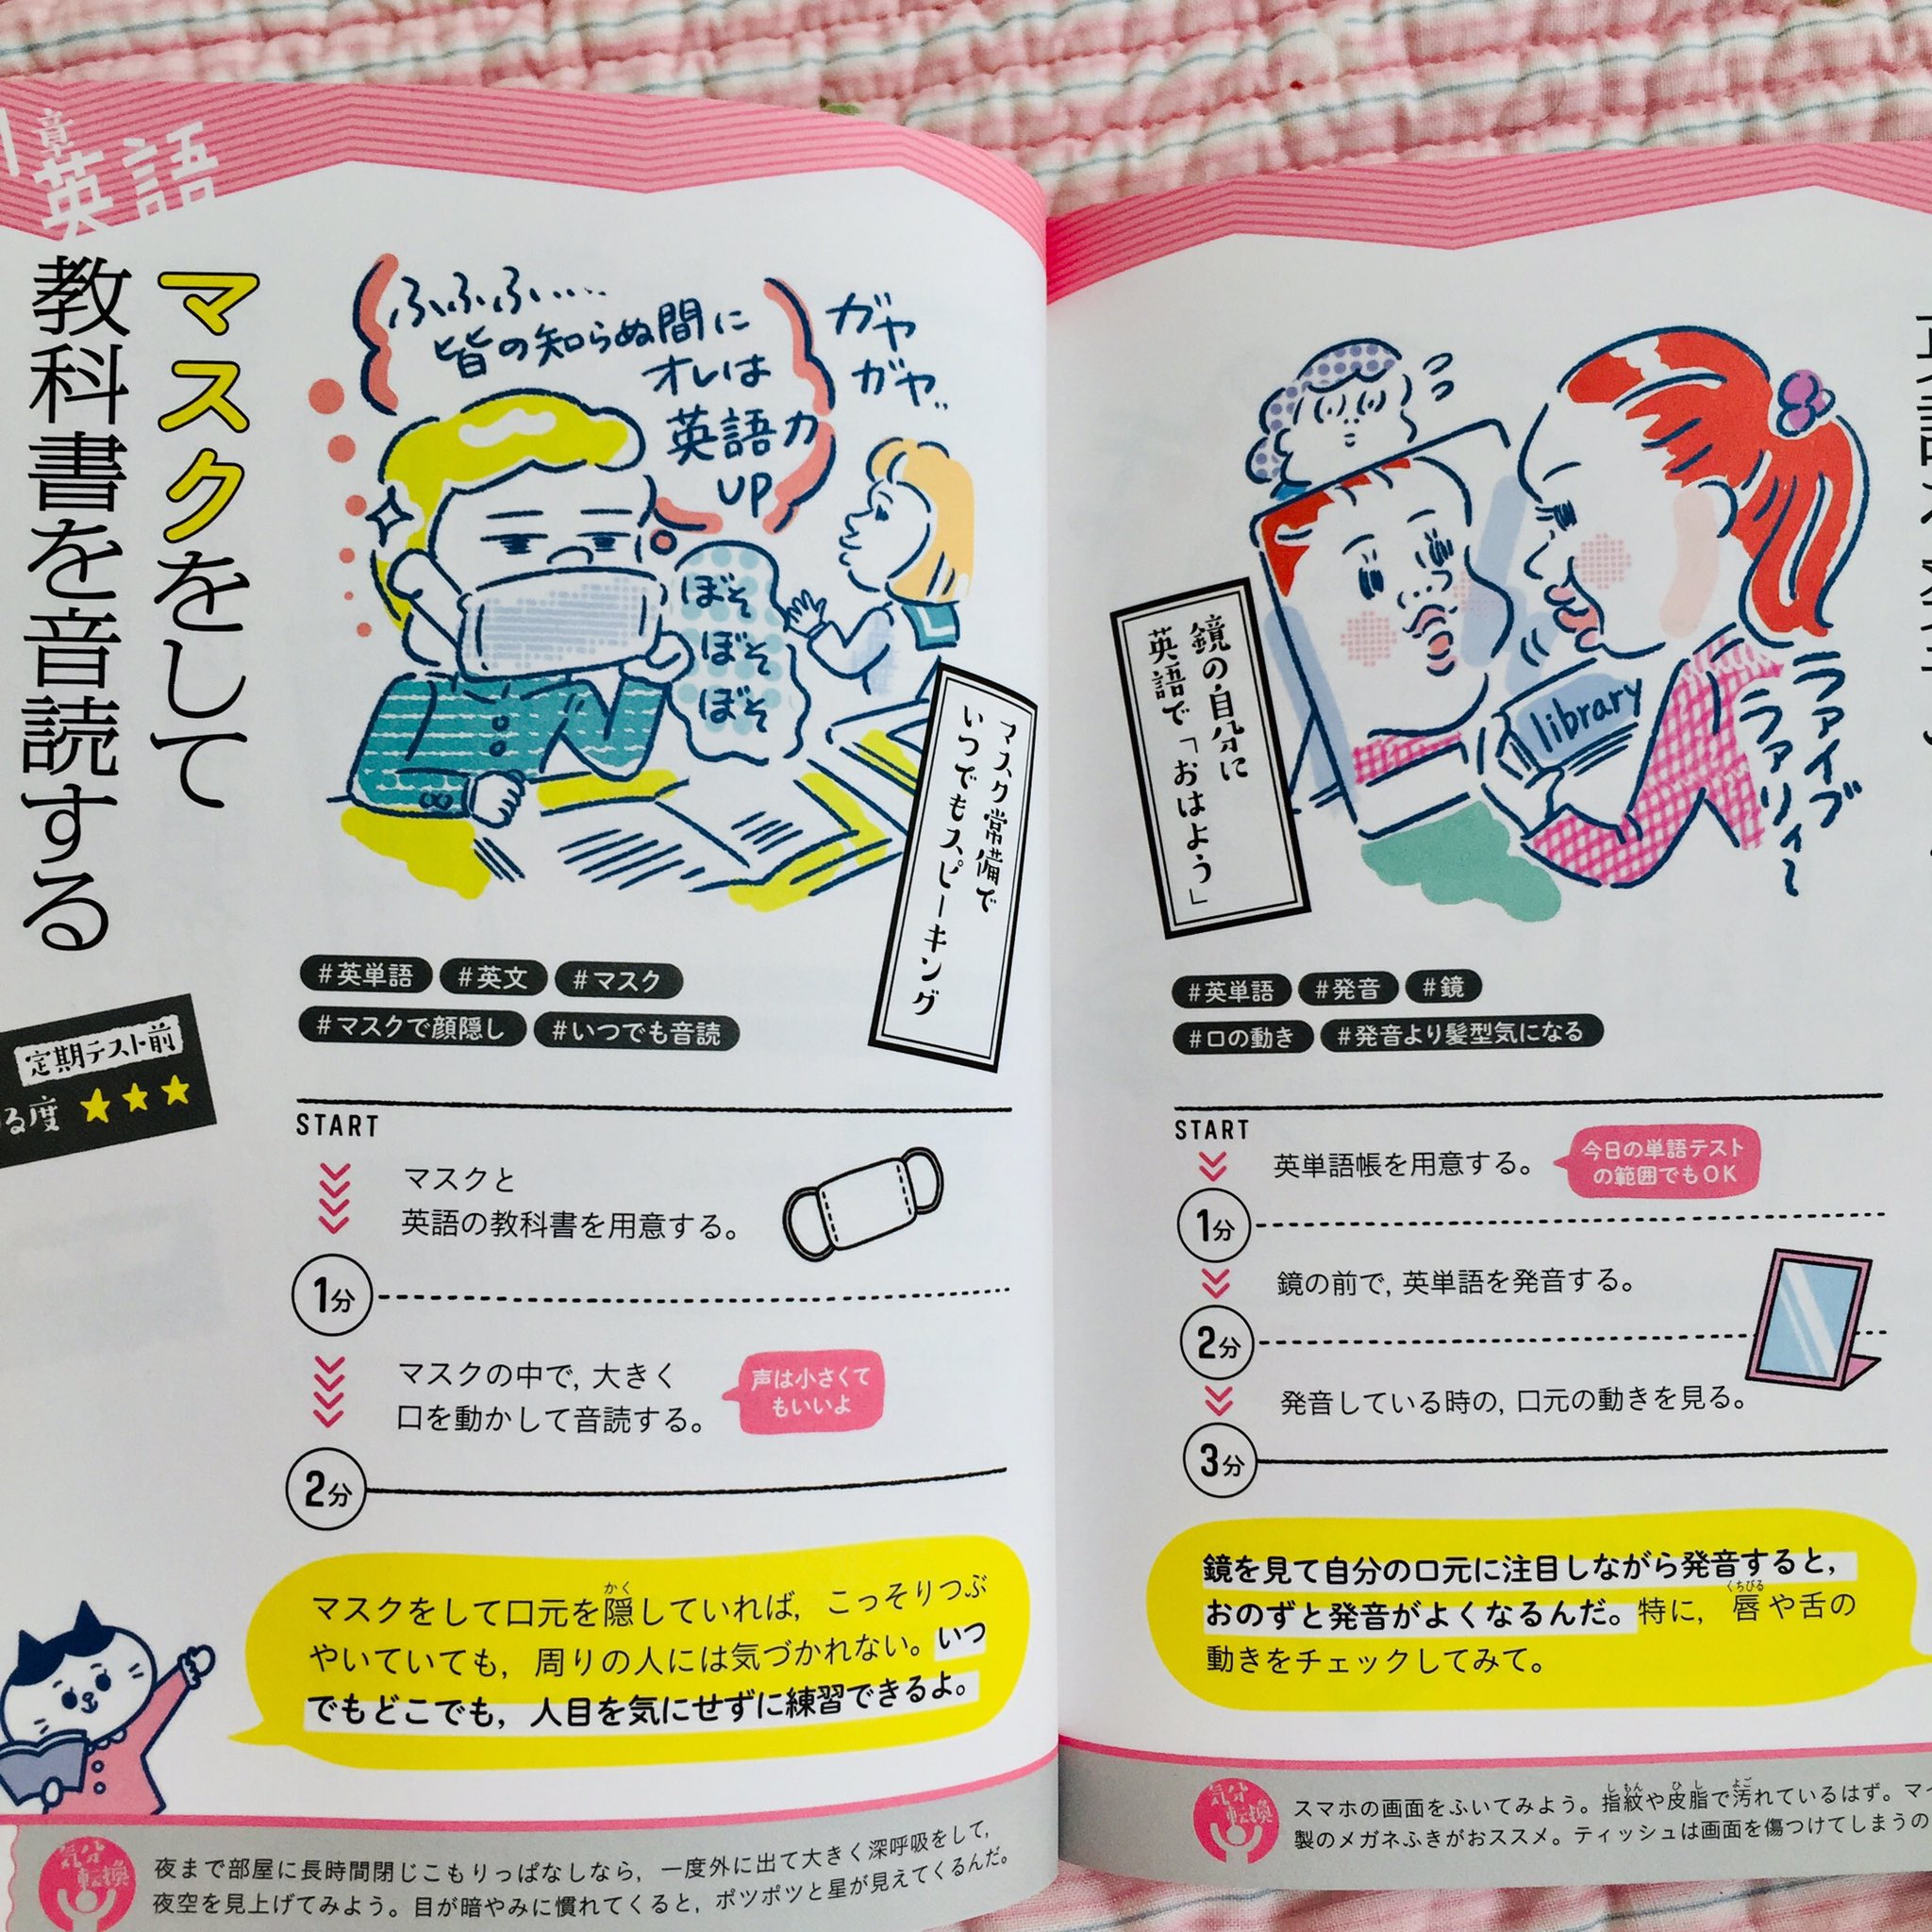 章
英語
マスクをして
教科書を音読する
定期テスト前
る度 ★★★
ふふふ‥‥
皆の知らぬ間に
オレは
英語力
UP
ガヤ
ガヤ‥
ぼそ
ぼそ
ぼそ
マスク常備で
いつでもスピーキング
#英単語 #英文 #マスク
#マスクで顔隠し #いつでも音読
START
マスクと
英語の教科書を用意する。
1分
マスクの中で, 大きく
口を動かして音読する。
声は小さくて
もいいよ
2分
マスクをして口元を隠していれば, こっそりつぶ
かく
やいていても, 周りの人には気づかれない。いつ
でもどこでも, 人目を気にせずに練習できるよ。
気分
転換
夜まで部屋に長時間閉じこもりっぱなしなら, 一度外に出て大きく深呼吸をして,
夜空を見上げてみよう。目が暗やみに慣れてくると, ポツポツと星が見えてくるんだ。
鏡の自分に
英語で「おはよう」
library
ラァイブ
ラァリィ〜
#英単語 #発音 #鏡
#口の動き #発音より髪型気になる
START
英単語帳を用意する。
今日の単語テスト
の範囲でもOK
1分
鏡の前で, 英単語を発音する。
2分
発音している時の, 口元の動きを見る。
3分
鏡を見て自分の口元に注目しながら発音すると,
おのずと発音がよくなるんだ。特に, 唇や舌の
くちびる
動きをチェックしてみて。
気分
転換
スマホの画面をふいてみよう。指紋や皮脂で汚れているはず。マイ
しもん ひし よご
製のメガネふきがおススメ。ティッシュは画面を傷つけてしまうの